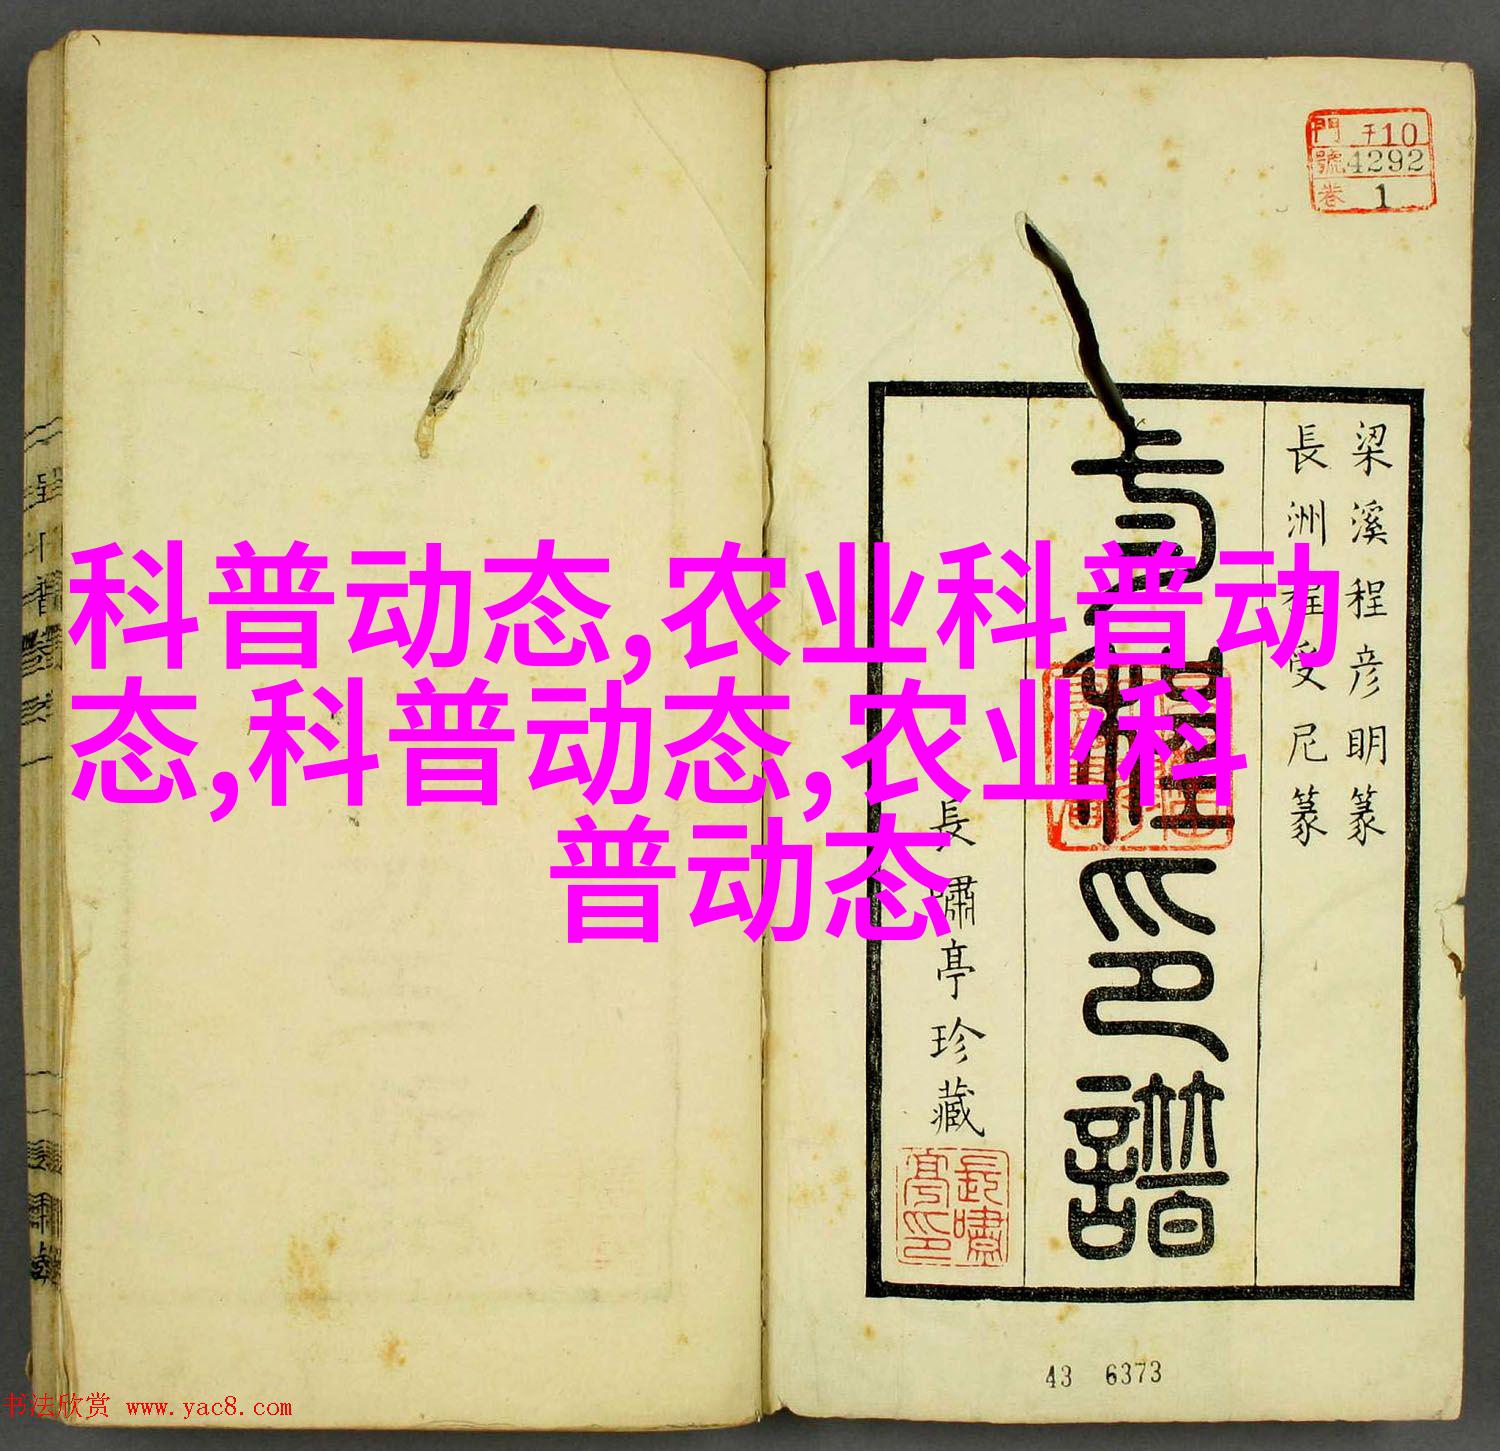 門 于10
號 4292
卷 1
梁溪程彦明篆
長洲程受尼篆
印譜
長嘯亭珍藏
長嘯亭印
科普动态,农业科普动
态,科普动态,农业科
普动态
43 6373
书法欣赏 www.yac8.com